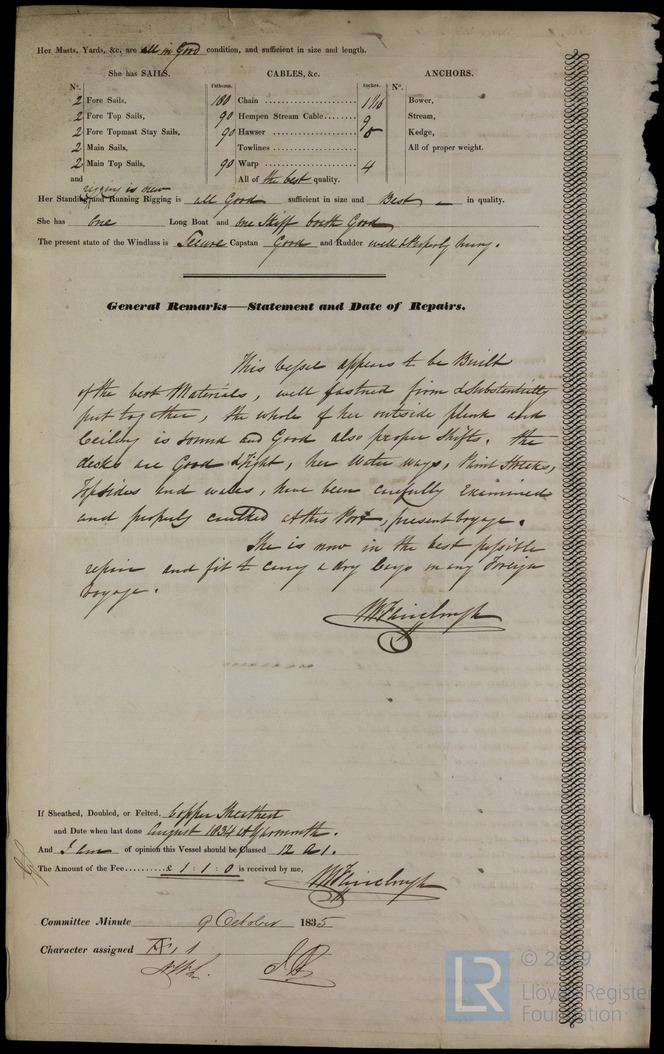 Her Masts, Yards, &c. are all in Good condition, and sufficient in size and length.
She has SAILS. CABLES, &c. ANCHORS.
N°. Fathoms. Inches. N°.
2 Fore Sails, 100 Chain 1 1/16 Bower,
2 Fore Top Sails, 90 Hempen Stream Cable 9 Stream,
2 Fore Topmast Stay Sails, 90 Hawser Kedge,
2 Main Sails, Towlines All of proper weight.
2 Main Top Sails, 90 Warp 4
and All of the best quality.
rigging is new
Her Standing and Running Rigging is all Good sufficient in size and Best in quality.
She has one Long Boat and one Skiff both Good
The present state of the Windlass is Secure Capstan Good and Rudder well & Properly hung.
General Remarks—Statement and Date of Repairs.
This vessel appears to be Built
of the best Materials, well fastned firm & Substantially
put together, the whole of her outside plank and
Ceiling is sound and Good also proper shifts. the
decks are Good & Tight, her Water ways, Paint Streaks,
Topsides and wales, have been carefully Examined
and properly caulked at this Port, present voyage.
She is now in the best possible
repair and fit to carry a dry Cargo on any Foreign
voyage.
If Sheathed, Doubled, or Felted, Copper Sheathed
and Date when last done August 1834 at Yarmouth.
And I am of opinion this Vessel should be Classed 12 A 1.
The Amount of the Fee £ 1 : 1 : 0 is received by me,
Committee Minute 9 October 1835
Character assigned A, 1
© 2019
LR Lloyd's Register
Foundation